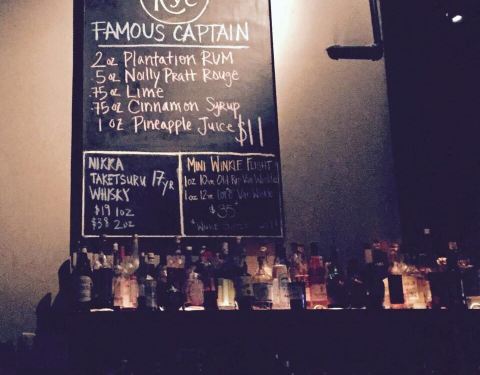 Rye
FAMOUS CAPTAIN
2 oz Plantation RUM
.5 oz Noilly Pratt Rouge
.75 oz Lime
.75 oz Cinnamon Syrup
1 oz Pineapple Juice $11
NIKKA
TAKETSURU 17 YR
WHISKY
$19 1oz
$38 2oz
MINI WINKLE FLIGHT
1oz 10yr Old Rip Van Winkle
1oz 12yr Lot B Van Winkle
$35